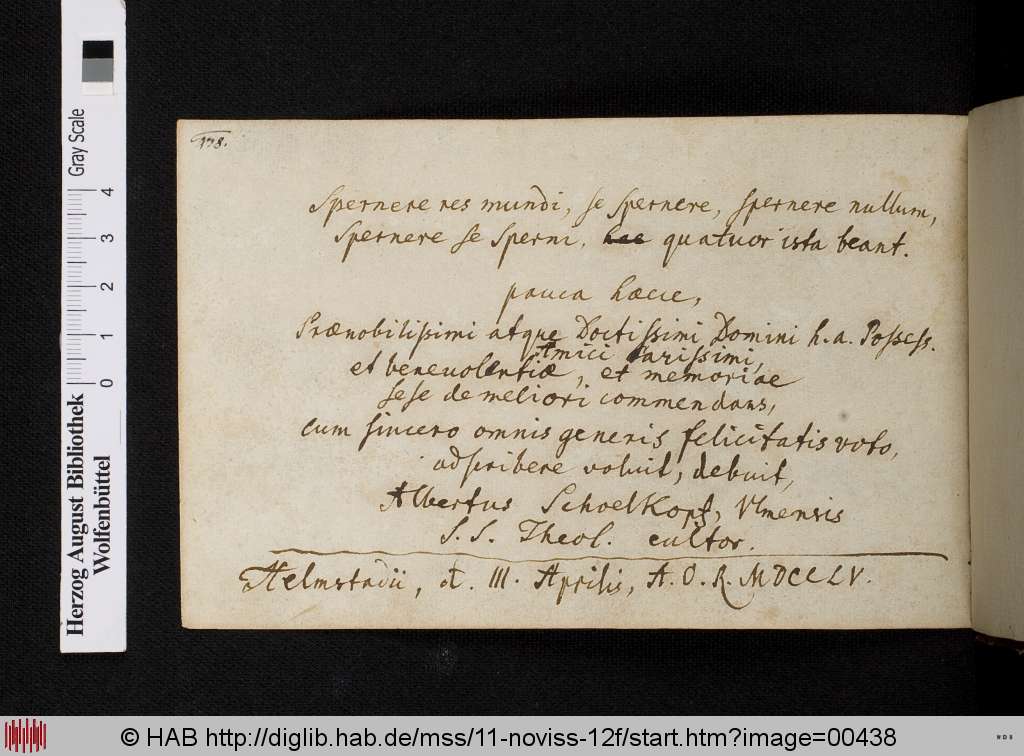 438.
Spernere res mundi, se spernere, spernere nullum,
Spernere se sperni, hae quatuor ista beant.
pauca haecce,
Prænobilissimi atque Doctissimi Domini h. a. Possess.
Amici Carissimi,
et benevolentiæ, et memoriae
sese de meliori commendans,
cum sincero omnis generis felicitatis voto,
adscribere voluit, debuit,
Albertus Schoelkopf, Ulmensis
S. S. Theol. cultor.
Helmstadii, d. III. Aprilis, A. O. R. MDCCLV.
Gray Scale
0 1 2 3 4
Herzog August Bibliothek
Wolfenbüttel
© HAB http://diglib.hab.de/mss/11-noviss-12f/start.htm?image=00438
WDB